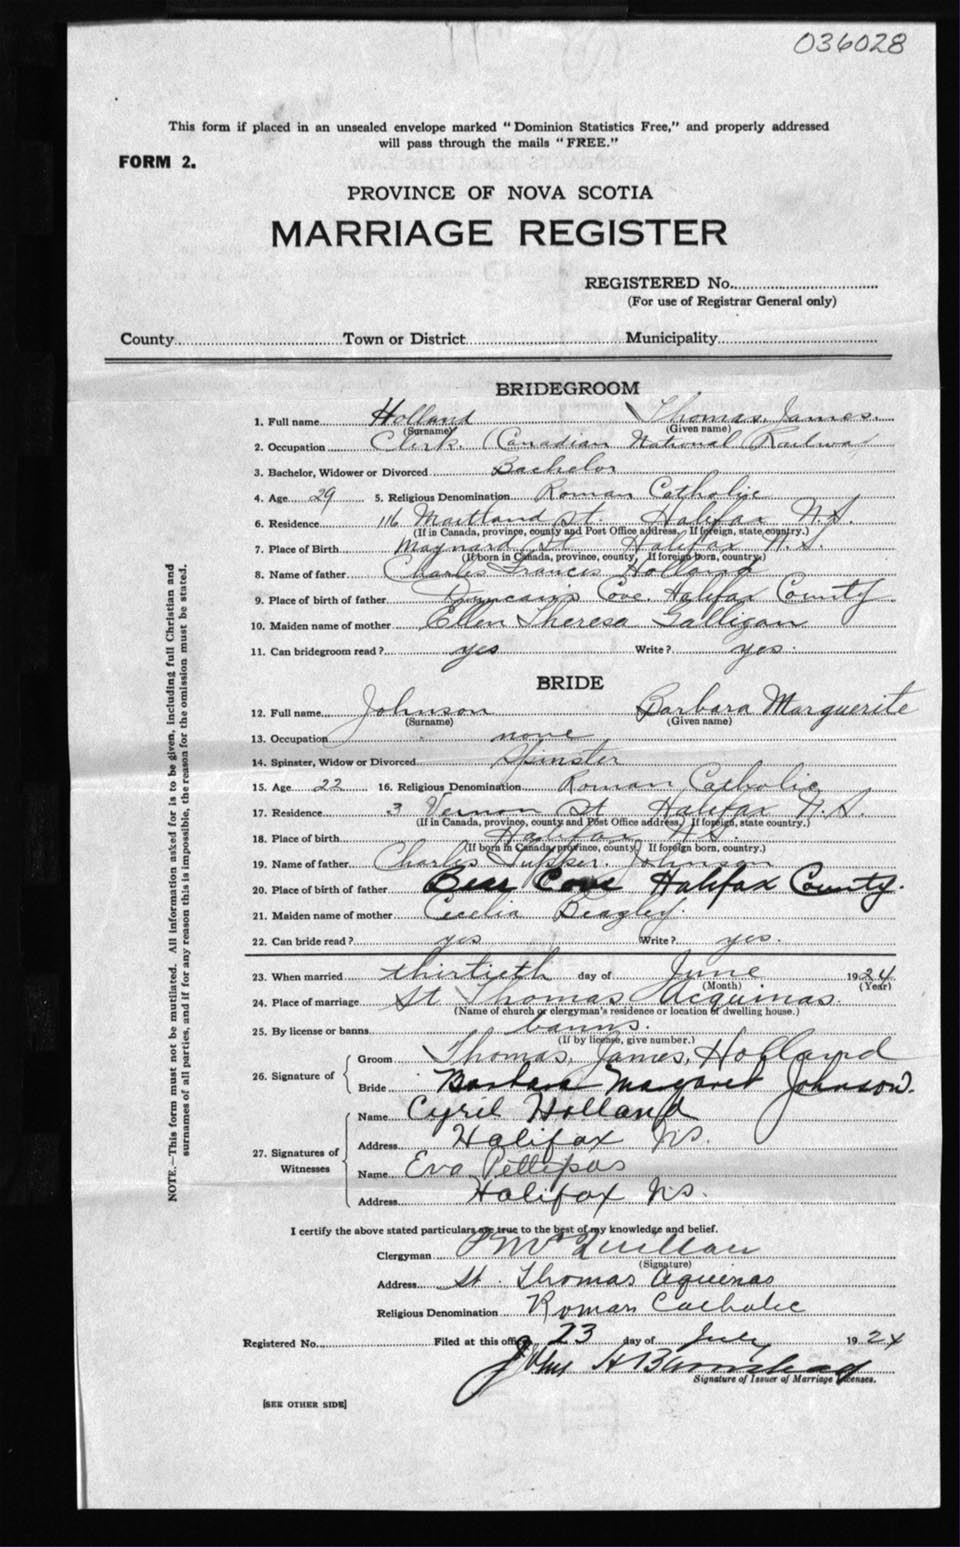 036028
This form if placed in an unsealed envelope marked "Dominion Statistics Free," and properly addressed
will pass through the mails "FREE."
FORM 2.
PROVINCE OF NOVA SCOTIA
MARRIAGE REGISTER
REGISTERED No.
(For use of Registrar General only)
County Town or District Municipality
BRIDEGROOM
1. Full name Holland Thomas, James.
(Surname) (Given name)
2. Occupation Clerk. (Canadian National Railway
3. Bachelor, Widower or Divorced Bachelor
4. Age 29 5. Religious Denomination Roman Catholic
6. Residence 116 Maitland St. Halifax N.S.
(If in Canada, province, county and Post Office address, If foreign, state country.)
7. Place of Birth Maynard St Halifax N.S.
(If born in Canada, province, county, If foreign born, country.)
8. Name of father Charles Francis Holland
9. Place of birth of father Duncan's Cove. Halifax County
10. Maiden name of mother Ellen Theresa Galligan
11. Can bridegroom read? yes Write? yes.
BRIDE
12. Full name Johnson Barbara Marguerite
(Surname) (Given name)
13. Occupation none
14. Spinster, Widow or Divorced Spinster
15. Age 22 16. Religious Denomination Roman Catholic
17. Residence 3 Vernon St Halifax N.S.
(If in Canada, province, county and Post Office address, If foreign, state country.)
18. Place of birth Halifax N.S.
(If born in Canada, province, county, If foreign born, country.)
19. Name of father Charles Tupper. Johnson
20. Place of birth of father Bear Cove Halifax County.
21. Maiden name of mother Cecelia Beazley.
22. Can bride read? yes Write? yes.
23. When married thirtieth day of June 1924
(Month) (Year)
24. Place of marriage St Thomas Acquinas.
(Name of church or clergyman's residence or location of dwelling house.)
25. By license or banns banns.
(If by license, give number.)
26. Signature of Groom Thomas, James, Holland
Bride Barbara Margaret Johnson.
27. Signatures of Witnesses Name Cyril Holland
Address Halifax N.S.
Name Eva Pettipas
Address Halifax N.S.
I certify the above stated particulars are true to the best of my knowledge and belief.
Clergyman McQuillan
(Signature)
Address St. Thomas Aquinas
Religious Denomination Roman Catholic
Registered No. Filed at this office 23 day of July 1924
John
Signature of Issuer of Marriage Licenses.
[SEE OTHER SIDE]
NOTE.—This form must not be mutilated. All information asked for is to be given, including full Christian and
surnames of all parties, and if for any reason this is impossible, the reason for the omission must be stated.